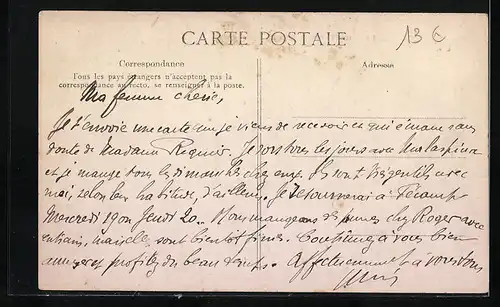 CARTE POSTALE
13 €
Correspondance
Adresse
Tous les pays étrangers n'acceptent pas la
correspondance au recto, se renseigner à la poste.
Ma femme chérie,
Je t'envoie une carte que je viens de recevoir et qui émane sans
doute de Madame Je vois tous les jours avec Malaspina
et je mange tous les dimanches chez eux. Ils sont très gentils avec
moi, selon leur habitude, d'ailleurs. Je retournerai à Fécamp
Mercredi 19 ou Jeudi 20. Nous mangeons des chez Roger avec
entrain, mais elles sont bientôt finies. Continuez à vous bien
amuser et profitez du beau temps. Affectueusement à vous tous